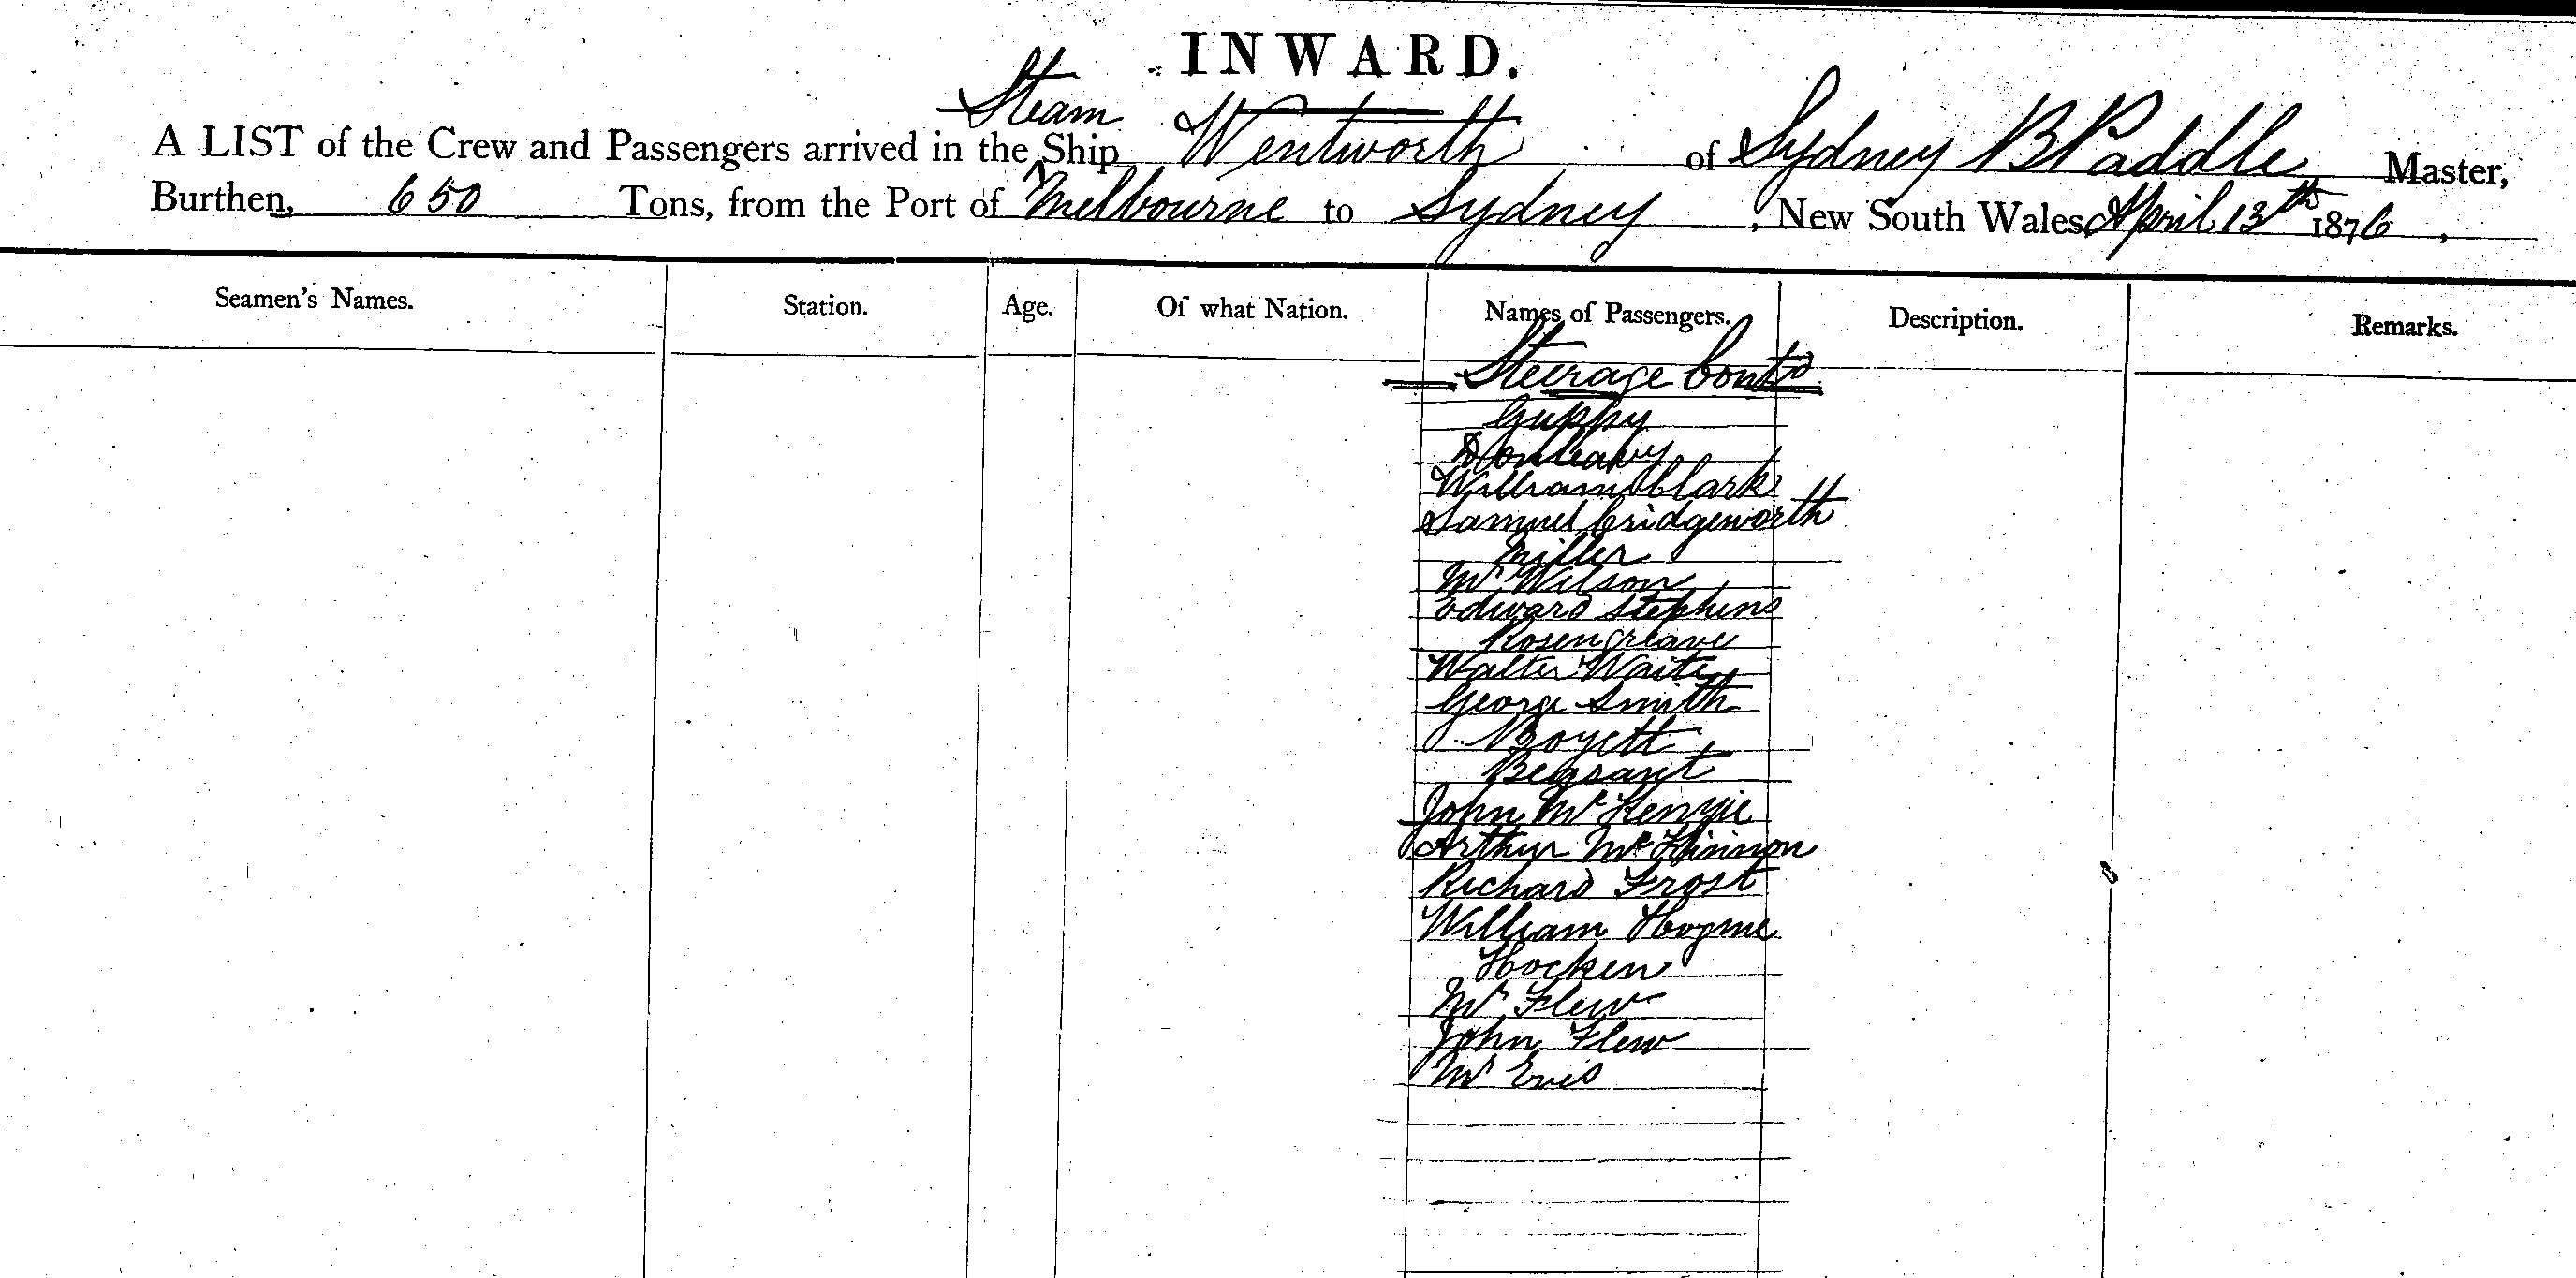 INWARD.
Steam
A LIST of the Crew and Passengers arrived in the Ship Wentworth of Sydney B Paddle Master,
Burthen, 650 Tons, from the Port of Melbourne to Sydney, New South Wales, April 13th 1876,
Seamen's Names. Station. Age. Of what Nation. Names of Passengers. Description. Remarks.
Steerage Contd
Guppy
Donleavy
William Clark
Samuel Cridgeworth
Miller
Mr Wilson
Edward Stephens
Rosengreave
Walter Waite
George Smith
Boyett
Beasant
John McKenzie
Arthur McKinnon
Richard Frost
William
Hocken
Mr Flew
John Flew
Mr